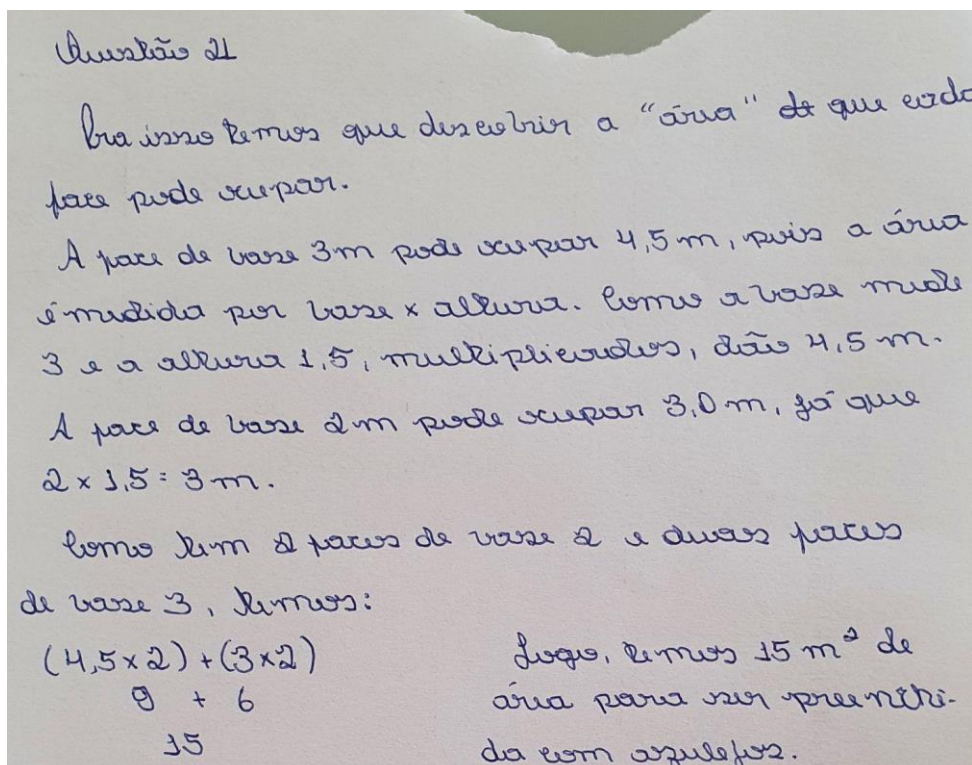 Questão 21
Pra isso temos que descobrir a "área" de que cada
face pode ocupar.
A face de base 3m pode ocupar 4,5 m, pois a área
é medida por base x altura. Como a base mede
3 e a altura 1,5, multiplicados, dão 4,5 m.
A face de base 2m pode ocupar 3,0 m, já que
2 x 1,5 = 3 m.
Como tem 2 faces de base 2 e duas faces
de base 3, temos:
(4,5 x 2) + (3 x 2)
9 + 6
15
Logo, temos 15 m² de
área para ser preenchi-
da com azulejos.